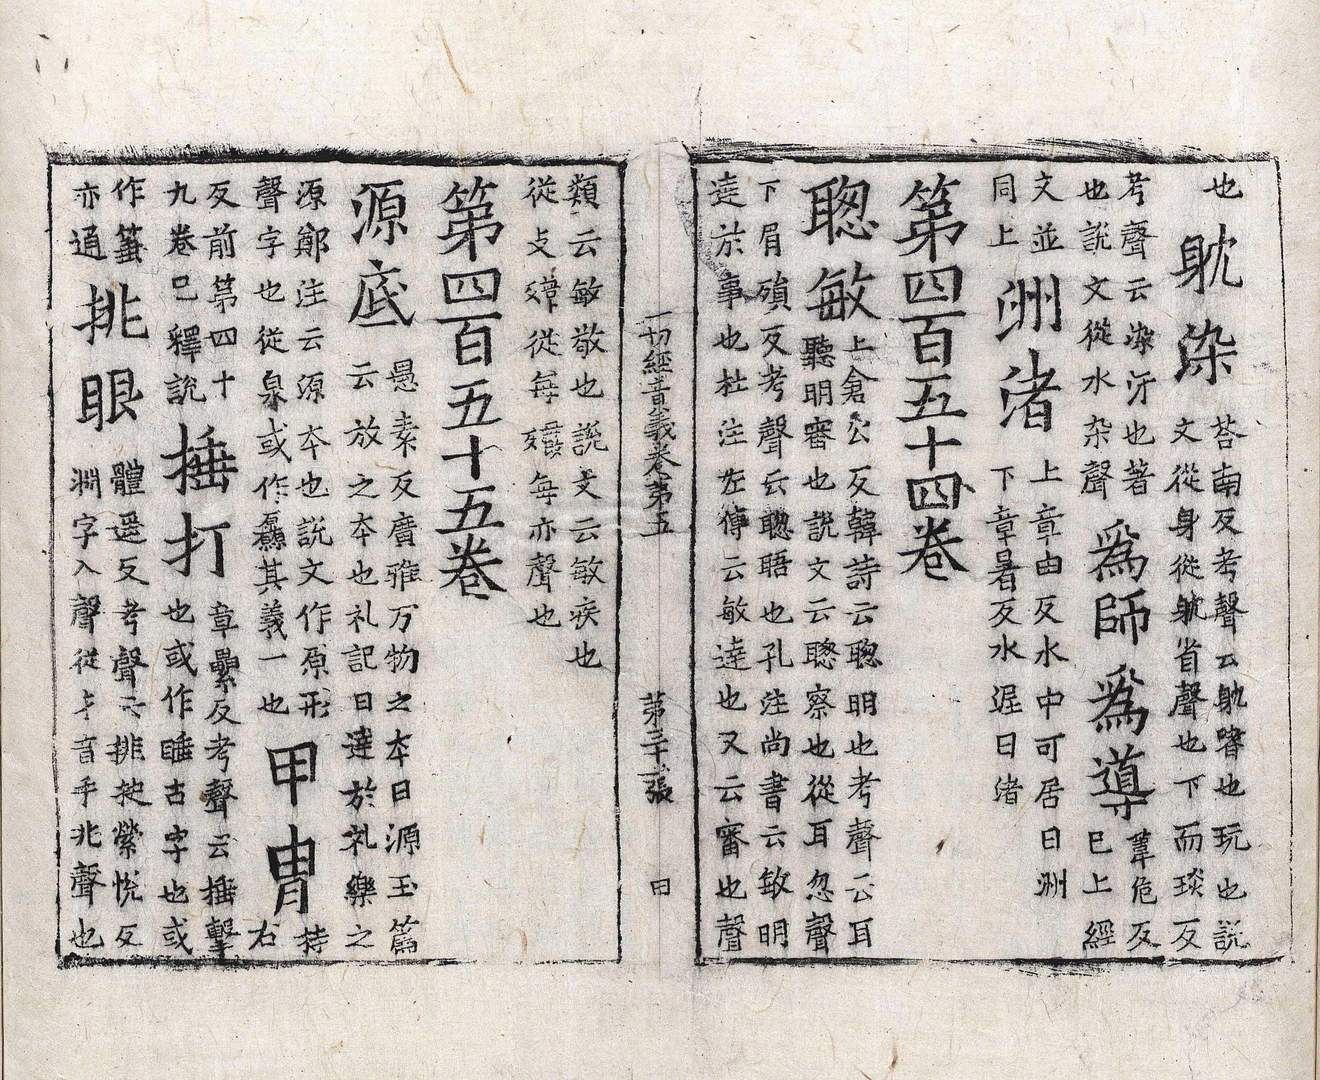 也
躭染
荅南反考聲云躭嗜也玩也說
文從身從躭省聲也下而琰反
考聲云染汙也著
也說文從水杂聲
爲師爲導
葦危反
巳上經
文並
同上
洲渚
上章由反水中可居曰洲
下章暑反水涯曰渚
第四百五十四卷
聰敏
上倉公反韓詩云聰明也考聲云耳
聽明審也說文云聰察也從耳忽聲
下眉殞反考聲云聰晤也孔注尚書云敏明
達於事也杜注左傳云敏達也又云審也聲
一切經音義卷第五
第三十一張
田
類云敏敬也說文云敏疾也
從攴從每每亦聲也
第四百五十五卷
源底
愚素反廣雅万物之本曰源玉篇
云放之本也礼記曰達於礼樂之
源鄭注云源本也說文作原形
聲字也從泉或作厵其義一也
甲冑
持
右
反前第四十
九卷已釋說
捶打
章壘反考聲云捶擊
也或作睡古字也或
作箠
亦通
挑眼
體遥反考聲云排抉縈悅反
淵字入聲從手音手兆聲也